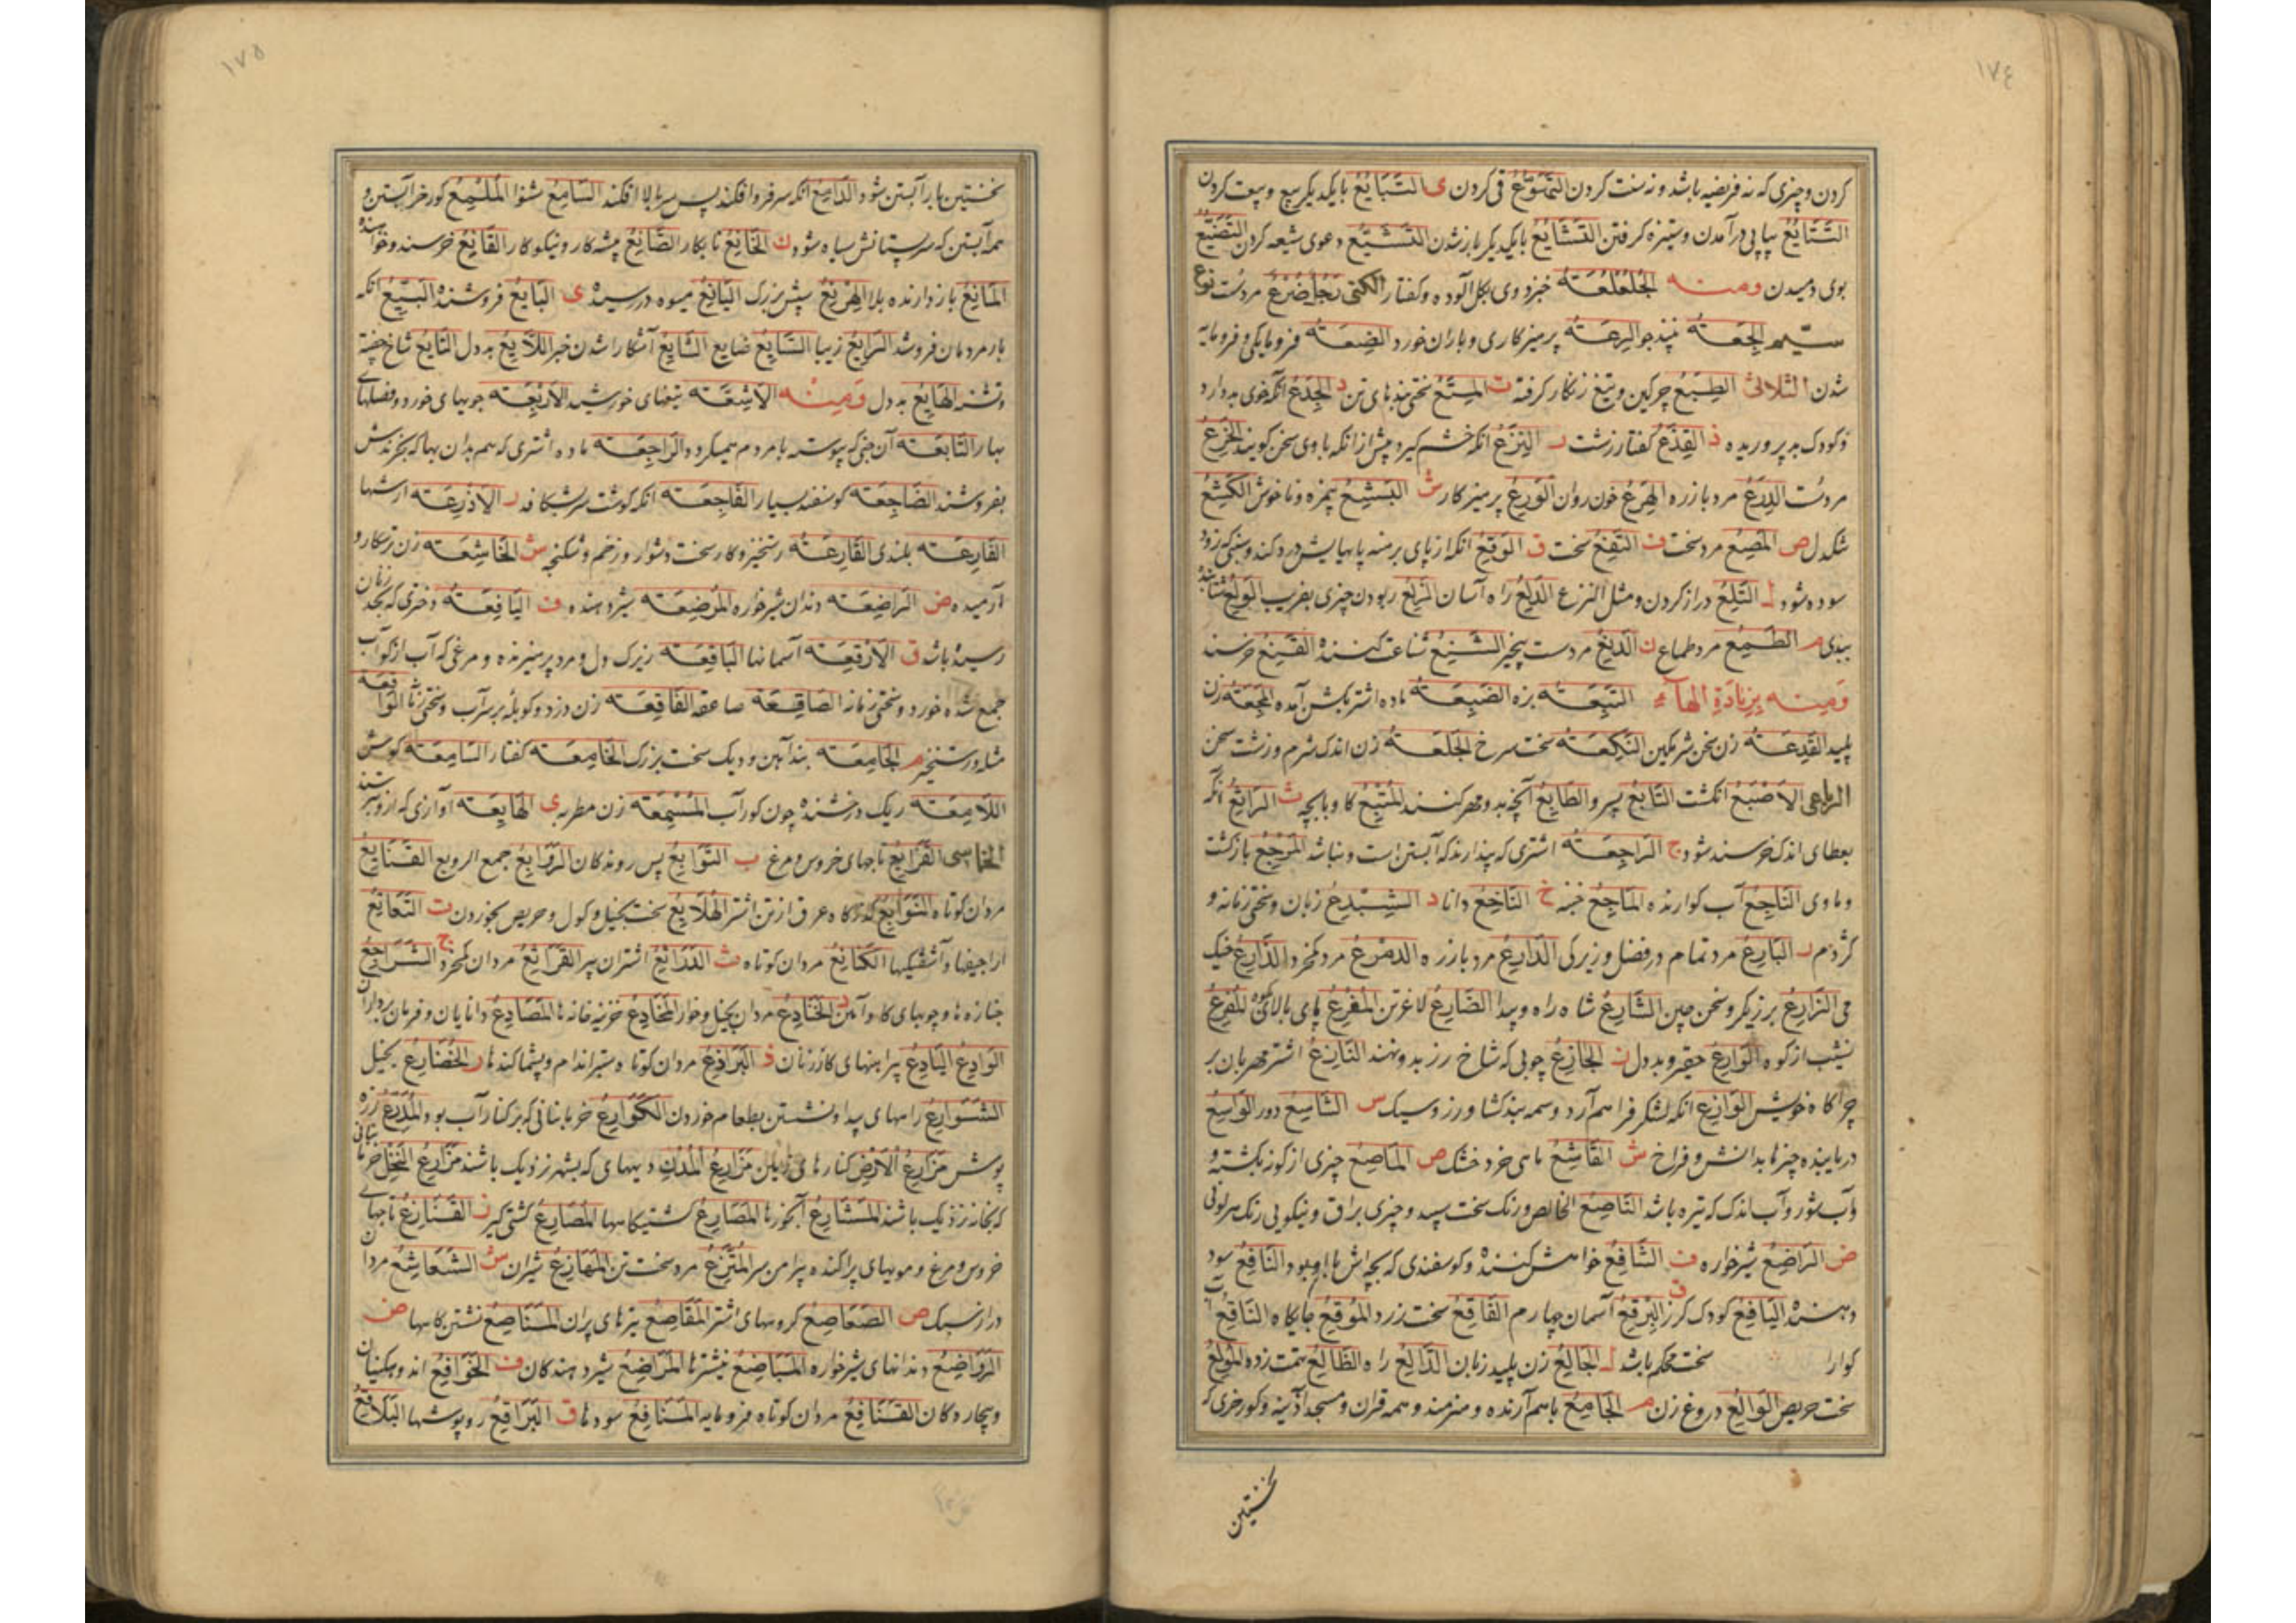 ١٧٤
كردن و چیزی كه نه فریضه باشد و نه سنت كردن التهوّع قی كردن ی التبایع بایكدیكر بیع و بیعت كردن
التتایع پیاپی درآمدن و ستیزه كرفتن التشایع بایكدیكر یارشدن التشیّع دعوی شیعه كردن التضیّع
بوی دمیدن ومنه الجلعلعة خبزدوی بكل آلوده و كفتار رجل ضرع مردست
الجعة نبیذ جو الرعة پرهیزكاری و باران خورد الضعة فرومایكی و فرومایه
شدن الثلاثی الطبع چركین و تیغ زنكار كرفته ت د الجدع آنكه خوی بد دارد
و كودك بد پروریده ذ القذع كفتار زشت ر النزع آنكه خشم كیرد پیش از آنكه با وی سخن كویند الخرع
مردست الدرع مرد بازره الهرع خون روان الورع پرهیزكار ش البشع بیمزه و ناخوش الكشع
تنكدل ص المصع مرد سخت ف ق الوقع آنكه از پای برهنه پایهایش درد كند و سنكی كه زود
سوده شود ل التلع دراز كردن و مثل النزع الدلع راه آسان ربودن چیزی بفریب الولع
ببدی م الطمع مرد طماع ن الشنع شناعت كننده القنع خرسند
ومنه بزیادة الهاء التبعة بزه الضبعة ماده اشتر بكشن آمده المجعة زن
پلید القدعة زن سخن شرمكین النكعة سخت سرخ الجلعة زن اندك شرم و زشت سخن
الرباعی الاصبع انكشت التابع پس رو الطابع آنچه بدو مهر كنند المتبع كاو با بچه ث الراثع آنكه
بعطای اندك خرسند شود ج الراجعة اشتری كه پندارند كه آبستن است و نباشد المرجع بازكشت
و ماوی الناجع آب كوارنده الماجع خ الناخع دانا د زبان و سختی زمانه و
كژدم ر البارع مرد تمام در فضل و زیركی الدارع مرد بازره
می الزارع برزیكر و سخن چین الشارع شاه راه و پیدا الضارع لاغرتن المفرع پای بالای كوه المفرع
نشیب از كوه الوارع حقیر و بددل ز الجازع چوبی كه شاخ رز بدو نهند النازع اشتر مهربان بر
چراكاه خویش الوازع آنكه لشكر فراهم آرد س الشاسع دور الواسع
دریابنده چیزها بدانش و فراخ ش القاشع ماهی خرد خشك ص الماصع چیزی از كونه بكشته و
آب شور و آب اندك كه تیره باشد الناصع الخالص و رنك سخت سپید و چیزی براق و نیكویی رنك هر لونی
ض الراضع شیرخواره ف الشافع خواهش كننده و كوسفندی كه بچه‌اش با او بود النافع سود
دهنده الیافع كودك كرز ق البرقع آسمان چهارم الفاقع سخت زرد الموقع جایكاه الناقع آب
كوارا سخت محكم باشد ل الجالع زن پلیدزبان الدالع راه الظالع تهمت زده المولع
سخت حریص الوالع دروغ زن م الجامع باهم آرنده و هنرمند و همه قرآن و مسجد آذینه و كورخری كه
نخستین
١٧٥
نخستین بار آبستن شود الدامع آنكه سر فروافكند پس سر بالا افكند السامع شنوا الملمع كورخر آبستن و
هر آبستن كه سر پستانش سیاه شود ن الخانع نابكار الصانع پیشه‌كار و نیكوكار القانع خرسند و خواسنده
المانع بازدارنده بلا الهرنع سپش بزرك الیانع میوه در رسیده ی البایع فروشنده البیّع آنكه
بار مردمان فروشد الرایع زیبا الشایع آشكارا شدن خبر اللایع بددل
و تشنه الهایع بددل ومنه تیغهای خورشید الاربعة جویهای خورد و فصلهای
بهار التابعة آن جنی كه پیوسته با مردم همیكردد الراجعة ماده اشتری كه هم بدان بها كه بخرندش
بفروشند الضاجعة كوسفند بسیار الفاجعة آنكه كوشت سر بشكافد ر الاذرعة ارشها
القارعة رستخیز و كار سخت دشوار و زخم و شكنجه ش الخاشعة زن ترسكار و
آرمیده ض الراضعة دندان شیرخواره المرضعة شیر دهنده ف الیافعة دختری كه بحد زنان
رسیده باشد ق الارقعة آسمانها الباقعة زیرك دل و مرد پرهیزنده و مرغی كه آب از كوآب
جمع شده خورد و سختی زمانه الصاقعة صاعقه الفاقعة زن دزد و كوبله بر سر آب و سختی زمانه الواقعة
مثله و رستخیز م الجامعة بند آهن و دیك سخت بزرك الخامعة كفتار السامعة كوش
اللامعة ریك درخشنده چون كورآب المسمعة زن مطربه ی الهایعة آوازی كه ازو بترسند
الخماسی القرابع تاجهای خروس و مرغ ب التوابع پس روندكان الروابع جمع الروبع القنابع
مردان كوتاه عرق از تن اشتر الهلابع سخت بخیل و كول و حریص بخوردن ت التعاتع
اراجیفها و آشفتكیها الكتایع مردان كوتاه ث الدراثع اشتران پیر القراثع مردان كمخرد ج الشراجع
جنازه‌ها و چوبهای كازر د الخنادع مردان بخیل و خوار المخادع خزینه خانه‌ها المصادع دانایان و فرمان برداران
الوادع پیراهنهای كار زنان ذ البراذع مردان كوتاه ستبر اندام و پشماكندها ر الخضارع بخیل
الشوارع راههای پیدا و نشستن بطعام خوردن الكوارع خرمابنانی كه بر كنار آب بود المدرّع زره
پوش مزارع الارض كنارهای زمین مزارع المدن دیههای كه بشهر نزدیك باشند مزارع النخل خرمابنانی
كه بخانه نزدیك باشند المشارع آبخورها المصارع كشتیكاهها المصارع كشتی كیر ز القنازع تاجهای
خروس و مرغ و مویهای پراكنده پیرامن سر المتزع مرد سخت تن المهازع شیران ش الشعاشع مردان
دراز سبك ص الصعاصع كروههای اشتر المقاصع تیزهای پران المناصع نشتن كاهها ض
الرواضع دندانهای شیرخواره المباضع نیشترها المراضع شیر دهندكان ف الخوافع اندوهكنیان
و بیچاردكان القنافع مردان كوتاه فرومایه المنافع سودها ق البراقع روپوشها البلاقع